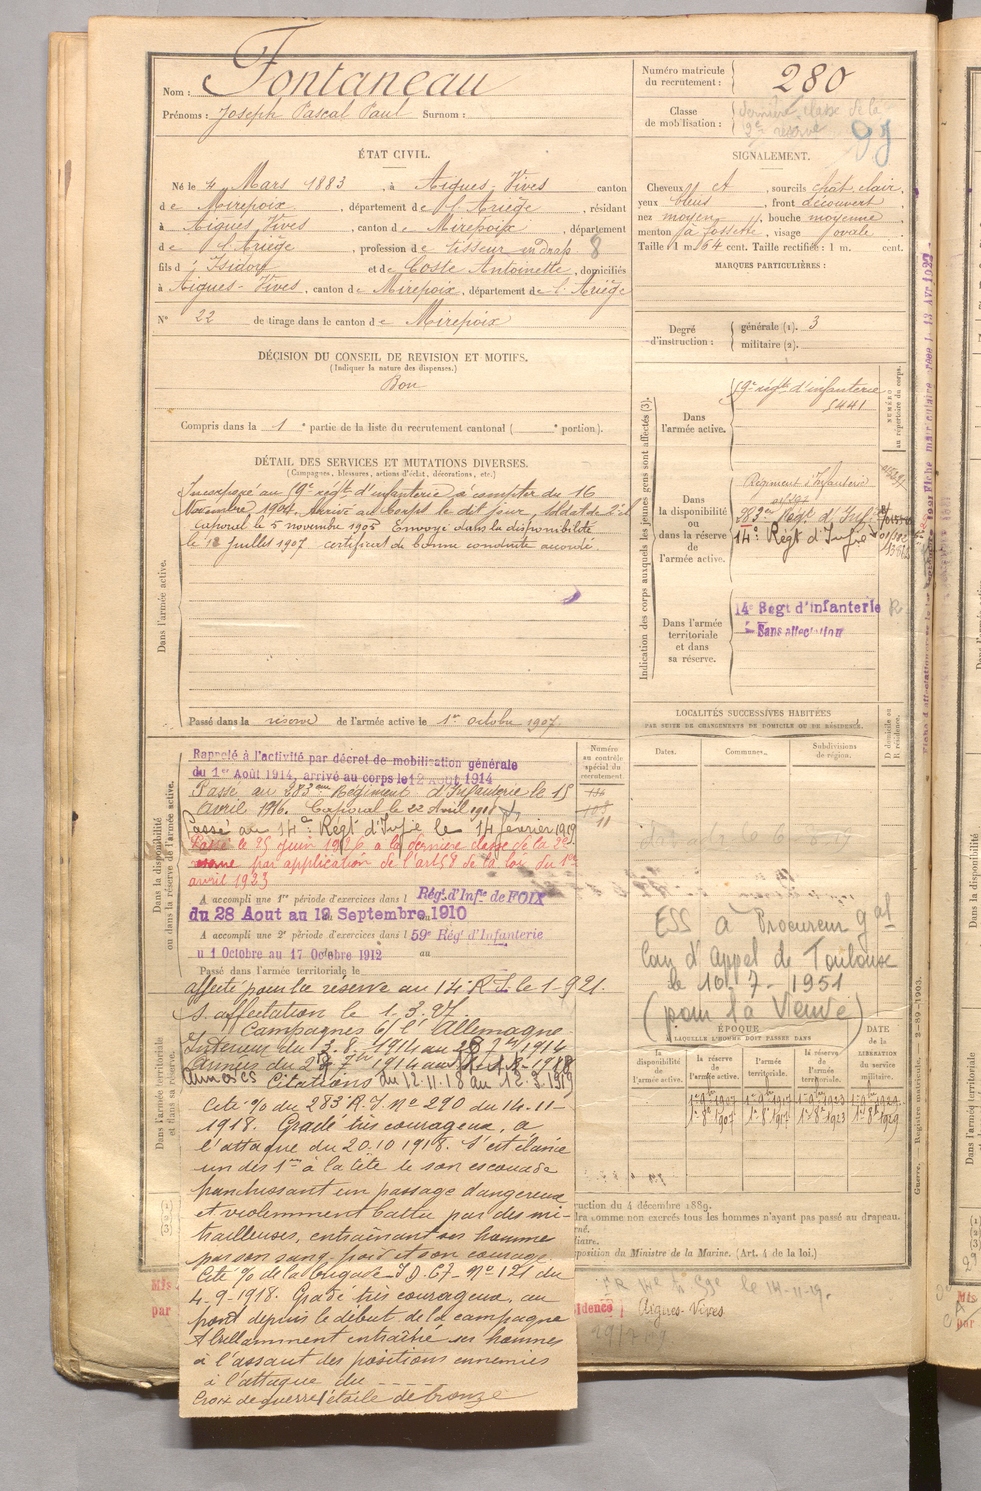 Nom : Fontaneau
Prénoms : Joseph Pascal Paul Surnom :
Numéro matricule du recrutement : 280
Classe de mobilisation : dernière classe de la 2e réserve
ÉTAT CIVIL.
Né le 4 Mars 1883, à Aigues-Vives canton
de Mirepoix, département de l'Ariège, résidant
à Aigues Vives, canton de Mirepoix, département
de l'Ariège, profession de tisseur en drap 8
fils d' Isidore et de Coste Antoinette, domiciliés
à Aigues-Vives, canton de Mirepoix, département de l'Ariège
N° 22 de tirage dans le canton de Mirepoix
SIGNALEMENT.
Cheveux et sourcils chât clair,
yeux bleus, front découvert
nez moyen, bouche moyenne
menton à fossette, visage ovale.
Taille 1 m 64 cent. Taille rectifiée : 1 m. cent.
MARQUES PARTICULIÈRES :
Degré d'instruction : générale (1). 3
militaire (2).
DÉCISION DU CONSEIL DE REVISION ET MOTIFS.
(Indiquer la nature des dispenses.)
Bon
Compris dans la 1e partie de la liste du recrutement cantonal ( e portion).
DÉTAIL DES SERVICES ET MUTATIONS DIVERSES.
(Campagnes, blessures, actions d'éclat, décorations, etc.)
Dans l'armée active.
Incorporé au 59e régt d'infanterie à compter du 16
Novembre 1904. Arrivé au Corps le dit jour, soldat de 2e cl
caporal le 5 novembre 1905 Envoyé dans la disponibilité
le 12 juillet 1907 certificat de bonne conduite accordé.
Passé dans la réserve de l'armée active le 1er octobre 1907.
Indication des corps auxquels les jeunes gens sont affectés (3).
NUMÉRO au répertoire du corps.
Dans l'armée active. 59e régt d'infanterie
5441
Dans la disponibilité ou dans la réserve de l'armée active.
Régiment d'Infanterie
283e Régt d'Inf.
14e Régt d'Infie
Dans l'armée territoriale et dans sa réserve.
14e Regt d'infanterie R
Sans affectation
LOCALITÉS SUCCESSIVES HABITÉES
PAR SUITE DE CHANGEMENTS DE DOMICILE OU DE RÉSIDENCE.
Dates. Communes. Subdivisions de région. D domicile ou R résidence.
Dans la disponibilité ou dans la réserve de l'armée active.
Numéro au contrôle spécial du recrutement
Rappelé à l'activité par décret de mobilisation générale
du 1er Août 1914, arrivé au corps le 12 Août 1914
Passé au 283ème Régiment d'Infanterie le 15
Avril 1916. Caporal le 22 Avril
Passé au 14e Régt d'Infie le 14 février 1919
Passé le 25 juin 1926 à la dernière classe de la 2e
réserve par application de l'art 58 de la loi du 1er
avril 1923
A accompli une 1re période d'exercices dans l Régt d'Infie de FOIX
du 28 Aout au 19 Septembre 1910
A accompli une 2e période d'exercices dans l 59e Régt d'Infanterie
u 1 Octobre au 17 Octobre 1912 au
Passé dans l'armée territoriale le
affecté pour la réserve au 14e R.I. le 1-9 21.
s. affectation le 1.3.27
Dans l'armée territoriale et dans sa réserve.
Campagnes c/ l'Allemagne
Intérieur du 13.8.1914 au
Armées du
Armées du 12.11.18 au 12.3.1919
Citations
Cité % du 283e R.I. N° 290 du 14-11-
1918. Gradé très courageux, a
l'attaque du 20.10 1918. S'est élancé
un des 1ers à la tête de son escouade
franchissant un passage dangereux
et violemment battu par des mi-
trailleuses, entraînant ses hommes
par son sang-froid et son courage
Cité % de la brigade I.D. 67 N° 121 du
4-9-1918. Gradé très courageux, au
front depuis le début de la campagne
A brillamment entraîné ses hommes
à l'assaut des positions ennemies
à l'attaque du ----
Croix de guerre étoile de bronze
ESS A Procureur gal
Cour d'Appel de Toulouse
le 10-7-1951
(pour la Veuve)
ÉPOQUE
À LAQUELLE L'HOMME DOIT PASSER DANS
DATE de la LIBÉRATION du service militaire.
la disponibilité de l'armée active. la réserve de l'armée active. l'armée territoriale. la réserve de l'armée territoriale.
1er 8bre 1907 1er 8bre 1917 1er 8bre 1923 1er 8bre 1929
ruction du 4 décembre 1889.
dra comme non exercés tous les hommes n'ayant pas passé au drapeau.
position du Ministre de la Marine. (Art. 4 de la loi.)
Guerre. — Registre matricule. 2-89-1903.
le 14-11-19.
sidence Aigues-Vives